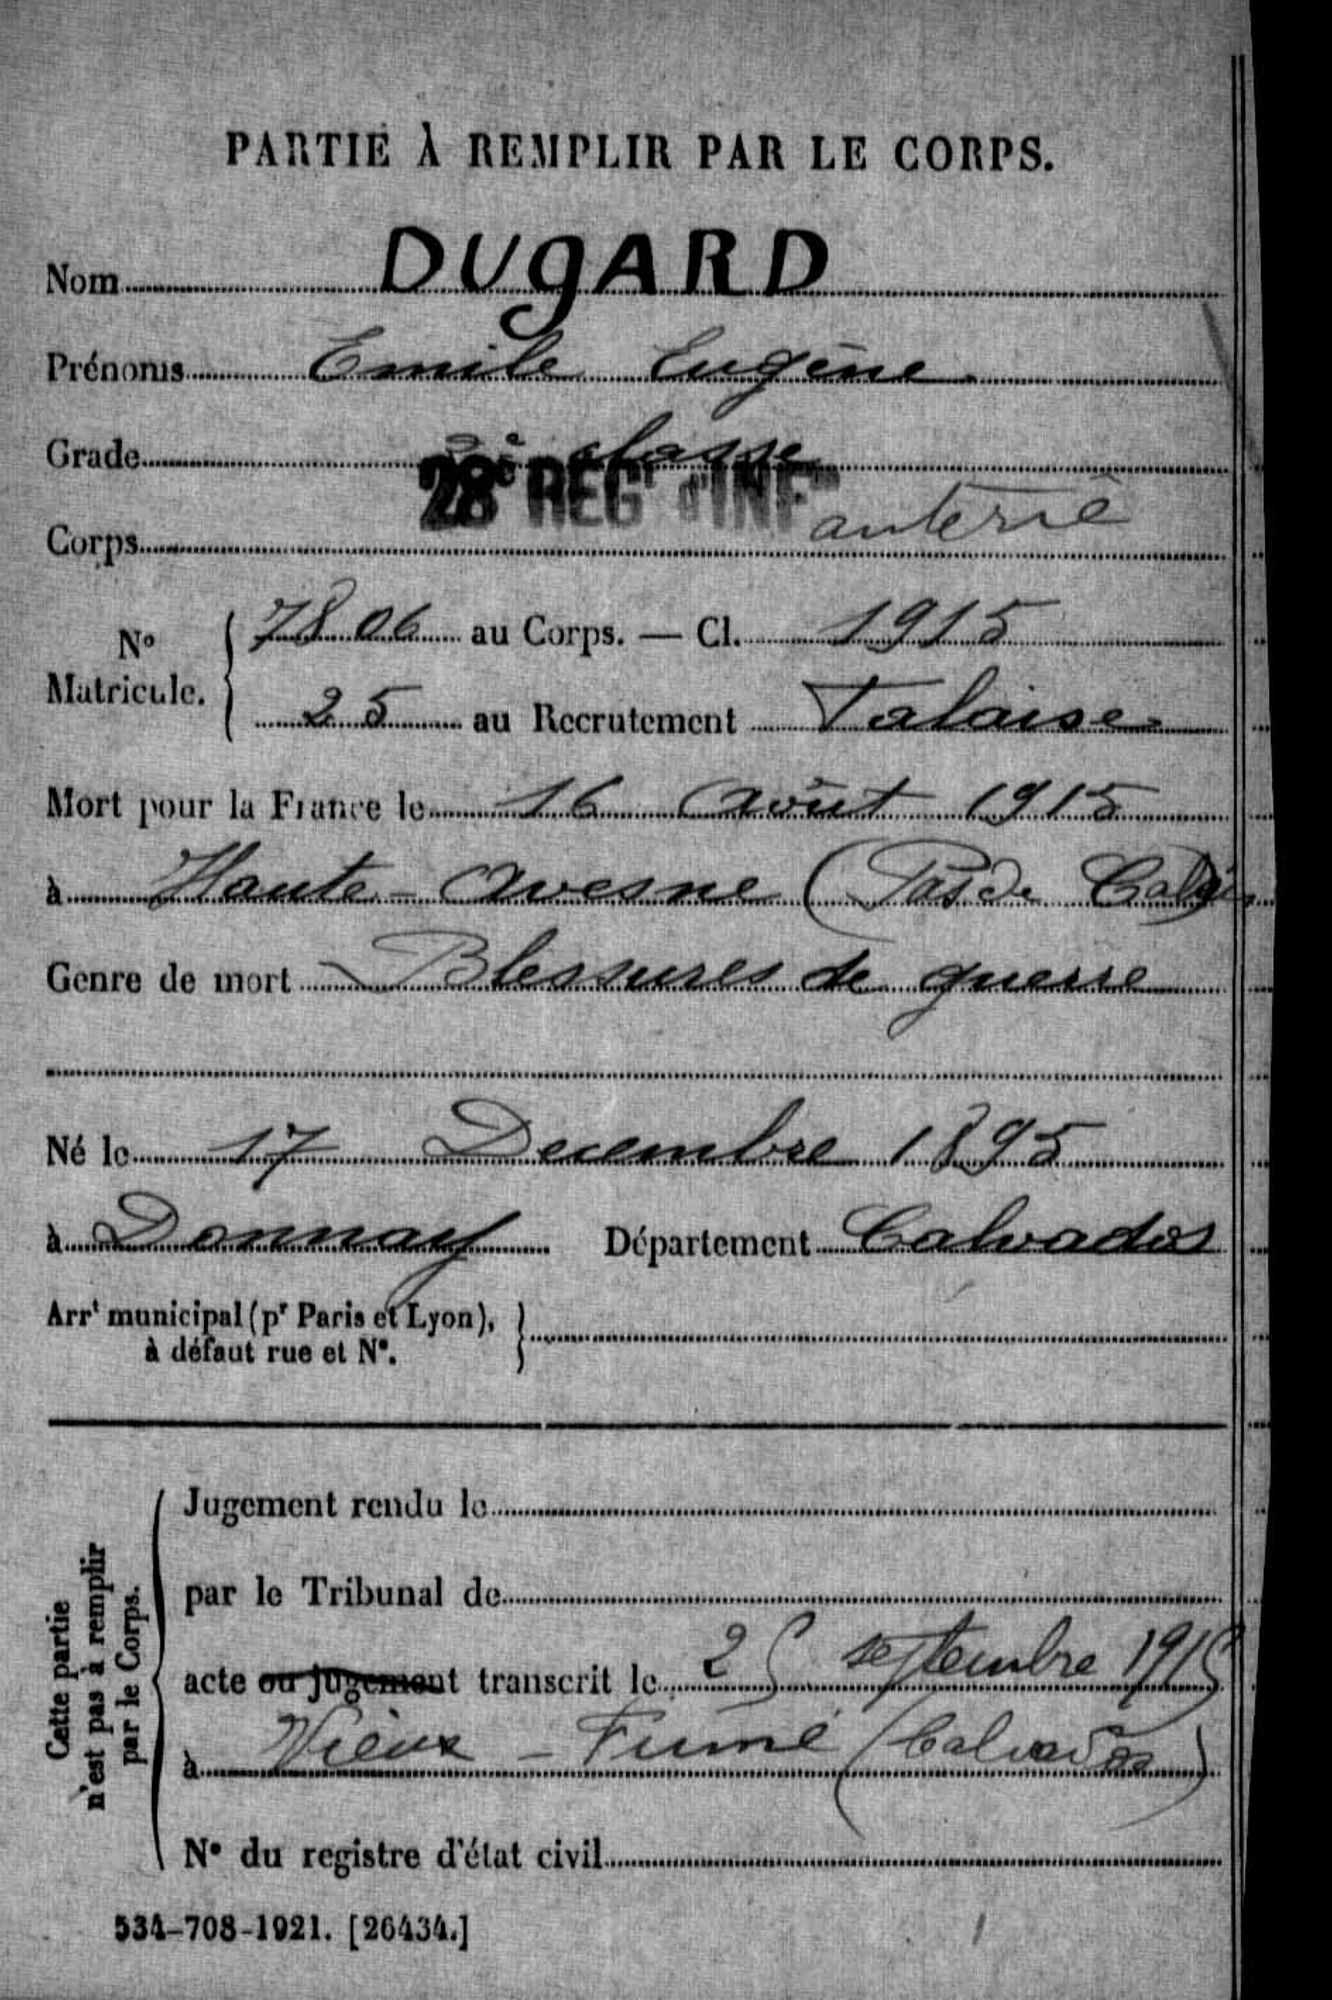 PARTIE À REMPLIR PAR LE CORPS.
Nom DUGARD
Prénoms Emile Eugène
Grade 2e classe
Corps 28e REGt d'INFie anterie
No Matricule. 7806 au Corps. — Cl. 1915
25 au Recrutement Falaise
Mort pour la France le 16 Août 1915
à Haute-Avesne (Pas de Calais)
Genre de mort Blessures de guerre
Né le 17 Decembre 1895
à Donnay Département Calvados
Arrt municipal (pr Paris et Lyon),
à défaut rue et No.
Cette partie
n'est pas à remplir
par le Corps.
Jugement rendu le
par le Tribunal de
acte ou jugement transcrit le 25 septembre 1915
à Vieux-Fumé (Calvados)
No du registre d'état civil
534-708-1921. [26434.]